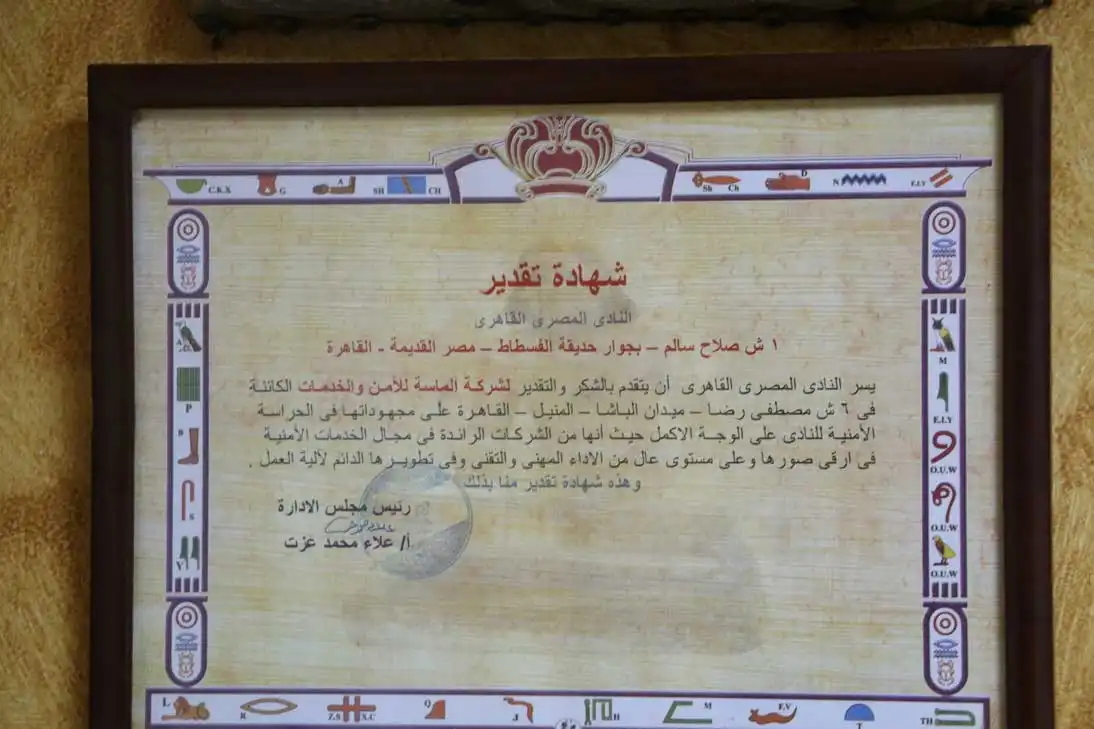 C.K.X G A SH CH Sh Ch D N E.I.Y
شهادة تقدير
النادى المصرى القاهرى
١ ش صلاح سالم – بجوار حديقة الفسطاط – مصر القديمة - القاهرة
يسر النادى المصرى القاهرى أن يتقدم بالشكر والتقدير لشركة الماسة للأمن والخدمات الكائنة
فى ٦ ش مصطفى رضا – ميدان الباشا – المنيل – القاهرة على مجهوداتها فى الحراسة
الأمنية للنادى على الوجة الاكمل حيث أنها من الشركات الرائدة فى مجال الخدمات الأمنية
فى ارقى صورها وعلى مستوى عال من الاداء المهنى والتقنى وفى تطويرها الدائم لآلية العمل .
وهذه شهادة تقدير منا بذلك
رئيس مجلس الادارة
أ/ علاء محمد عزت
A
P
B
S
Y
M
E.I.Y
O.U.W
O.U.W
O.U.W
L R Z.S X.C Q J H M F.V T TH